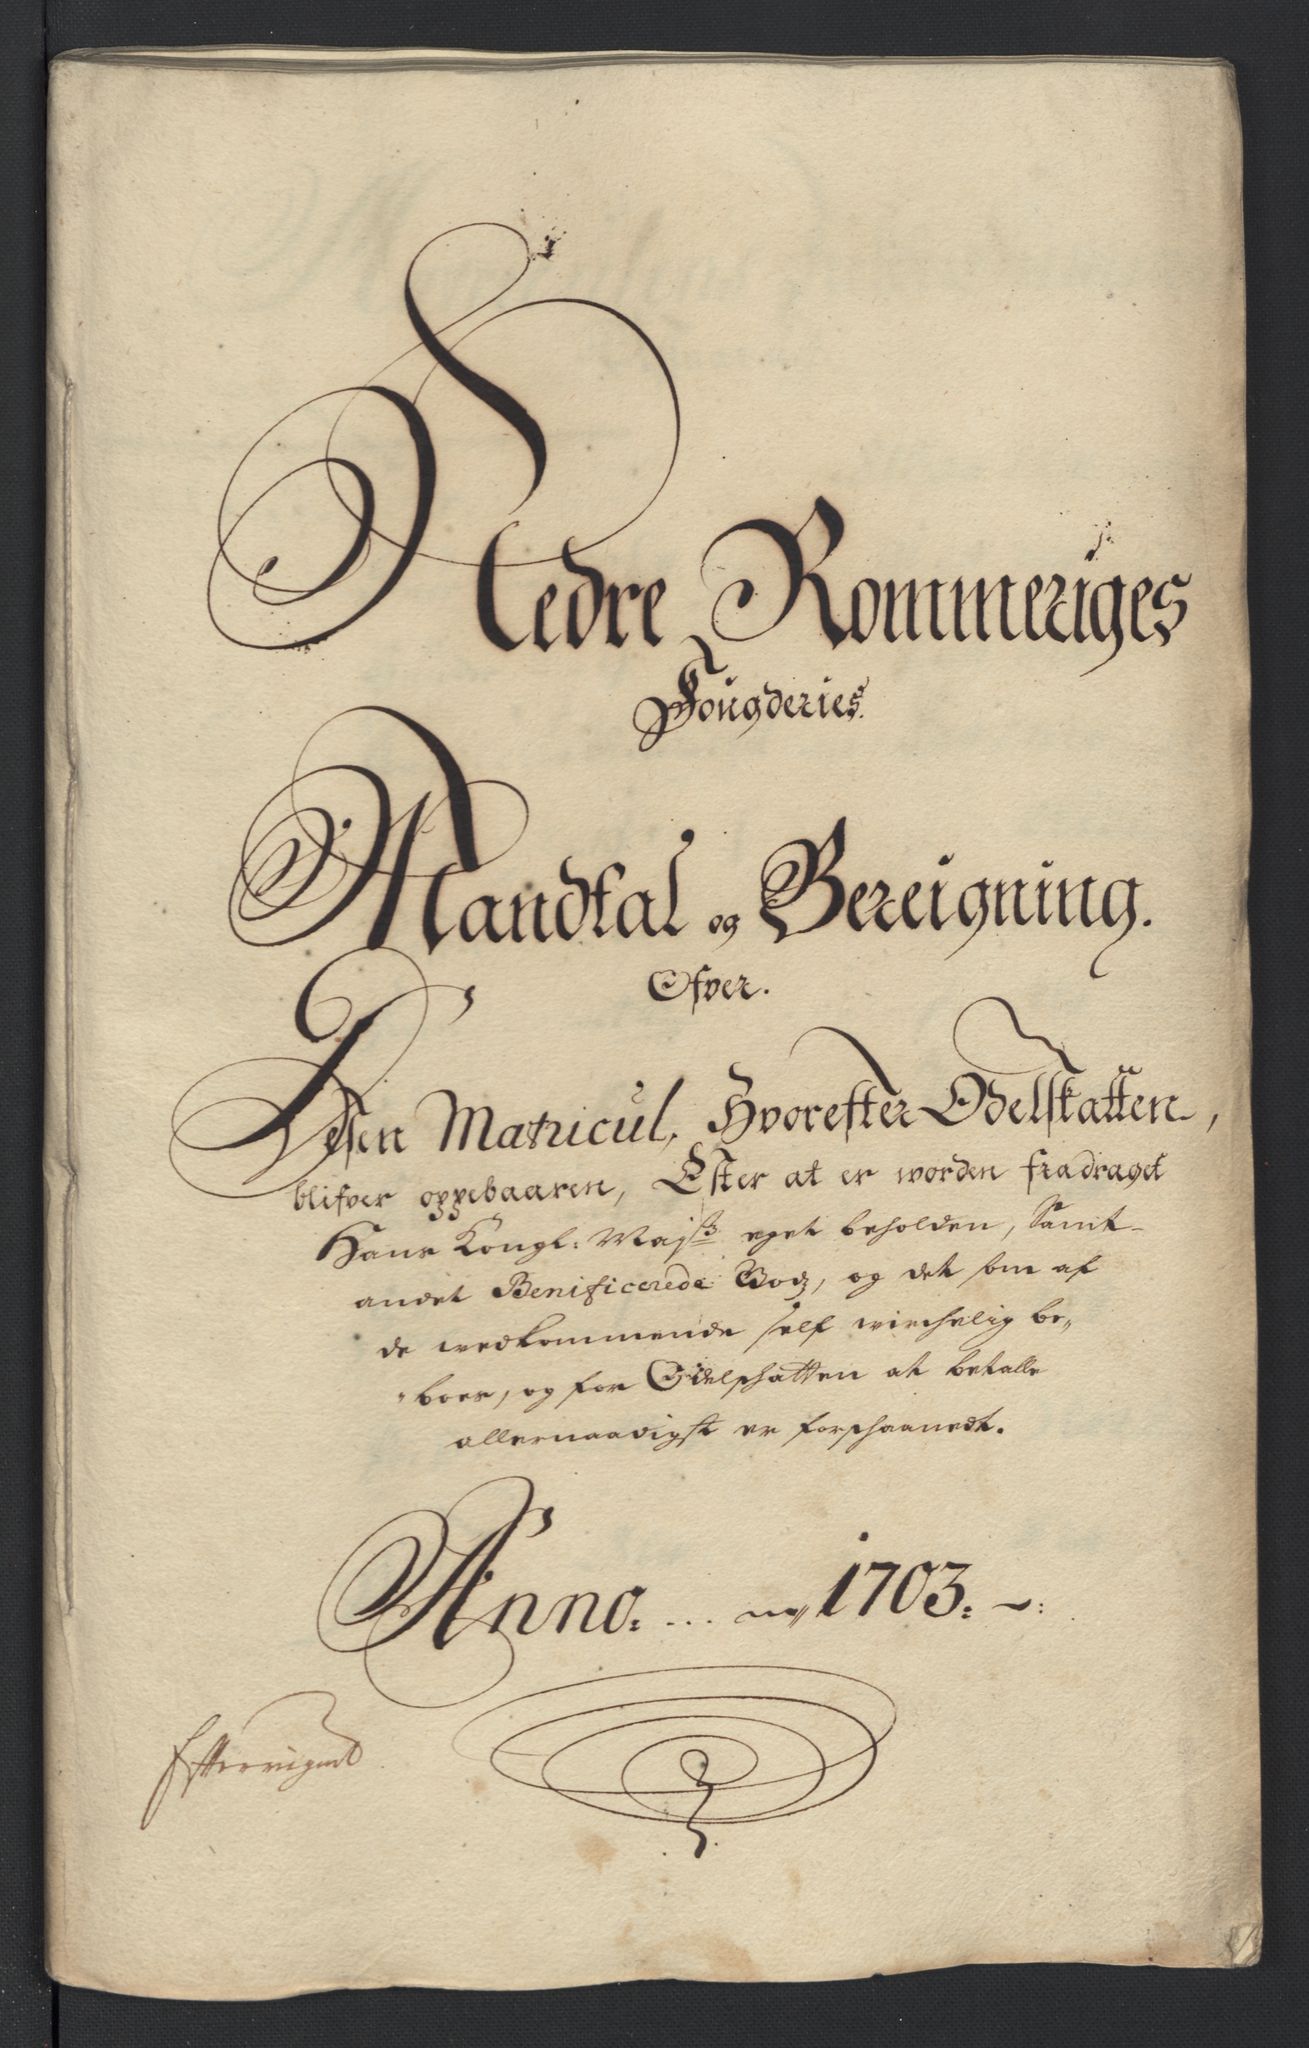 Nedre Rommeriges
Fougderies.
Mandtal og Bereigning.
Ofver.
Desen Matricul, Hvorefter Odelskatten,
blifver oppebaaren, Efter at er worden fradraget
Hans Kongl: Mayts: eget beholden, Samt
andet Benificerede Godz, og det som af
de wedkommende self wirchelig be„
„boes, og for Odelschatten at betalle
allernaadigst er forschaanedt.
Anno: ... 1703:
Efterreignet